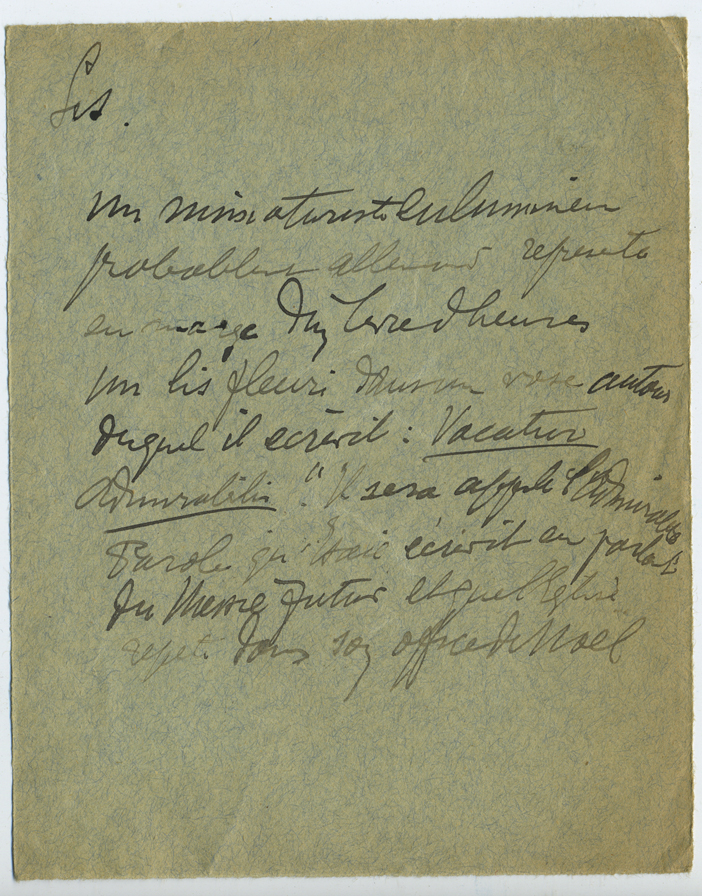 Lis.
un miniaturiste enlumineur
probablement allemand représenta
en marge d'un livre d'heures
un lis fleuri dans un vase autour
duquel il écrivit : Vocatur
Admirabilis. " Il sera appelé l'Admirable
Parole qu'Isaïe écrivit en parlant
du Messie futur et que l'Eglise
répète dans son office de Noël